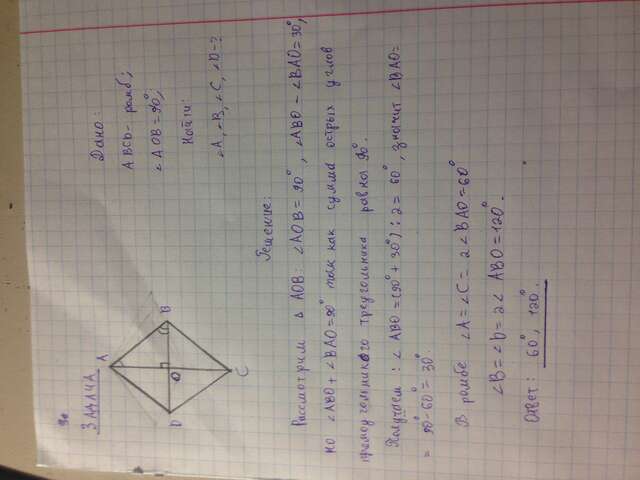 ЗАДАЧА
A
B
C
D
O
Дано:
ABCD - ромб;
∠AOB = 90°;
Найти:
∠A, ∠B, ∠C, ∠D - ?
Решение:
Рассмотрим Δ AOB: ∠AOB = 90°, ∠ABO - ∠BAO = 30°,
но ∠ABO + ∠BAO = 90° так как сумма острых углов
прямоугольного треугольника равна 90°.
Получаем: ∠ABO = (90° + 30°) : 2 = 60°, значит ∠BAO =
= 90° - 60° = 30°
В ромбе ∠A = ∠C = 2∠BAO = 60°
∠B = ∠D = 2∠ABO = 120°.
Ответ: 60°, 120°.